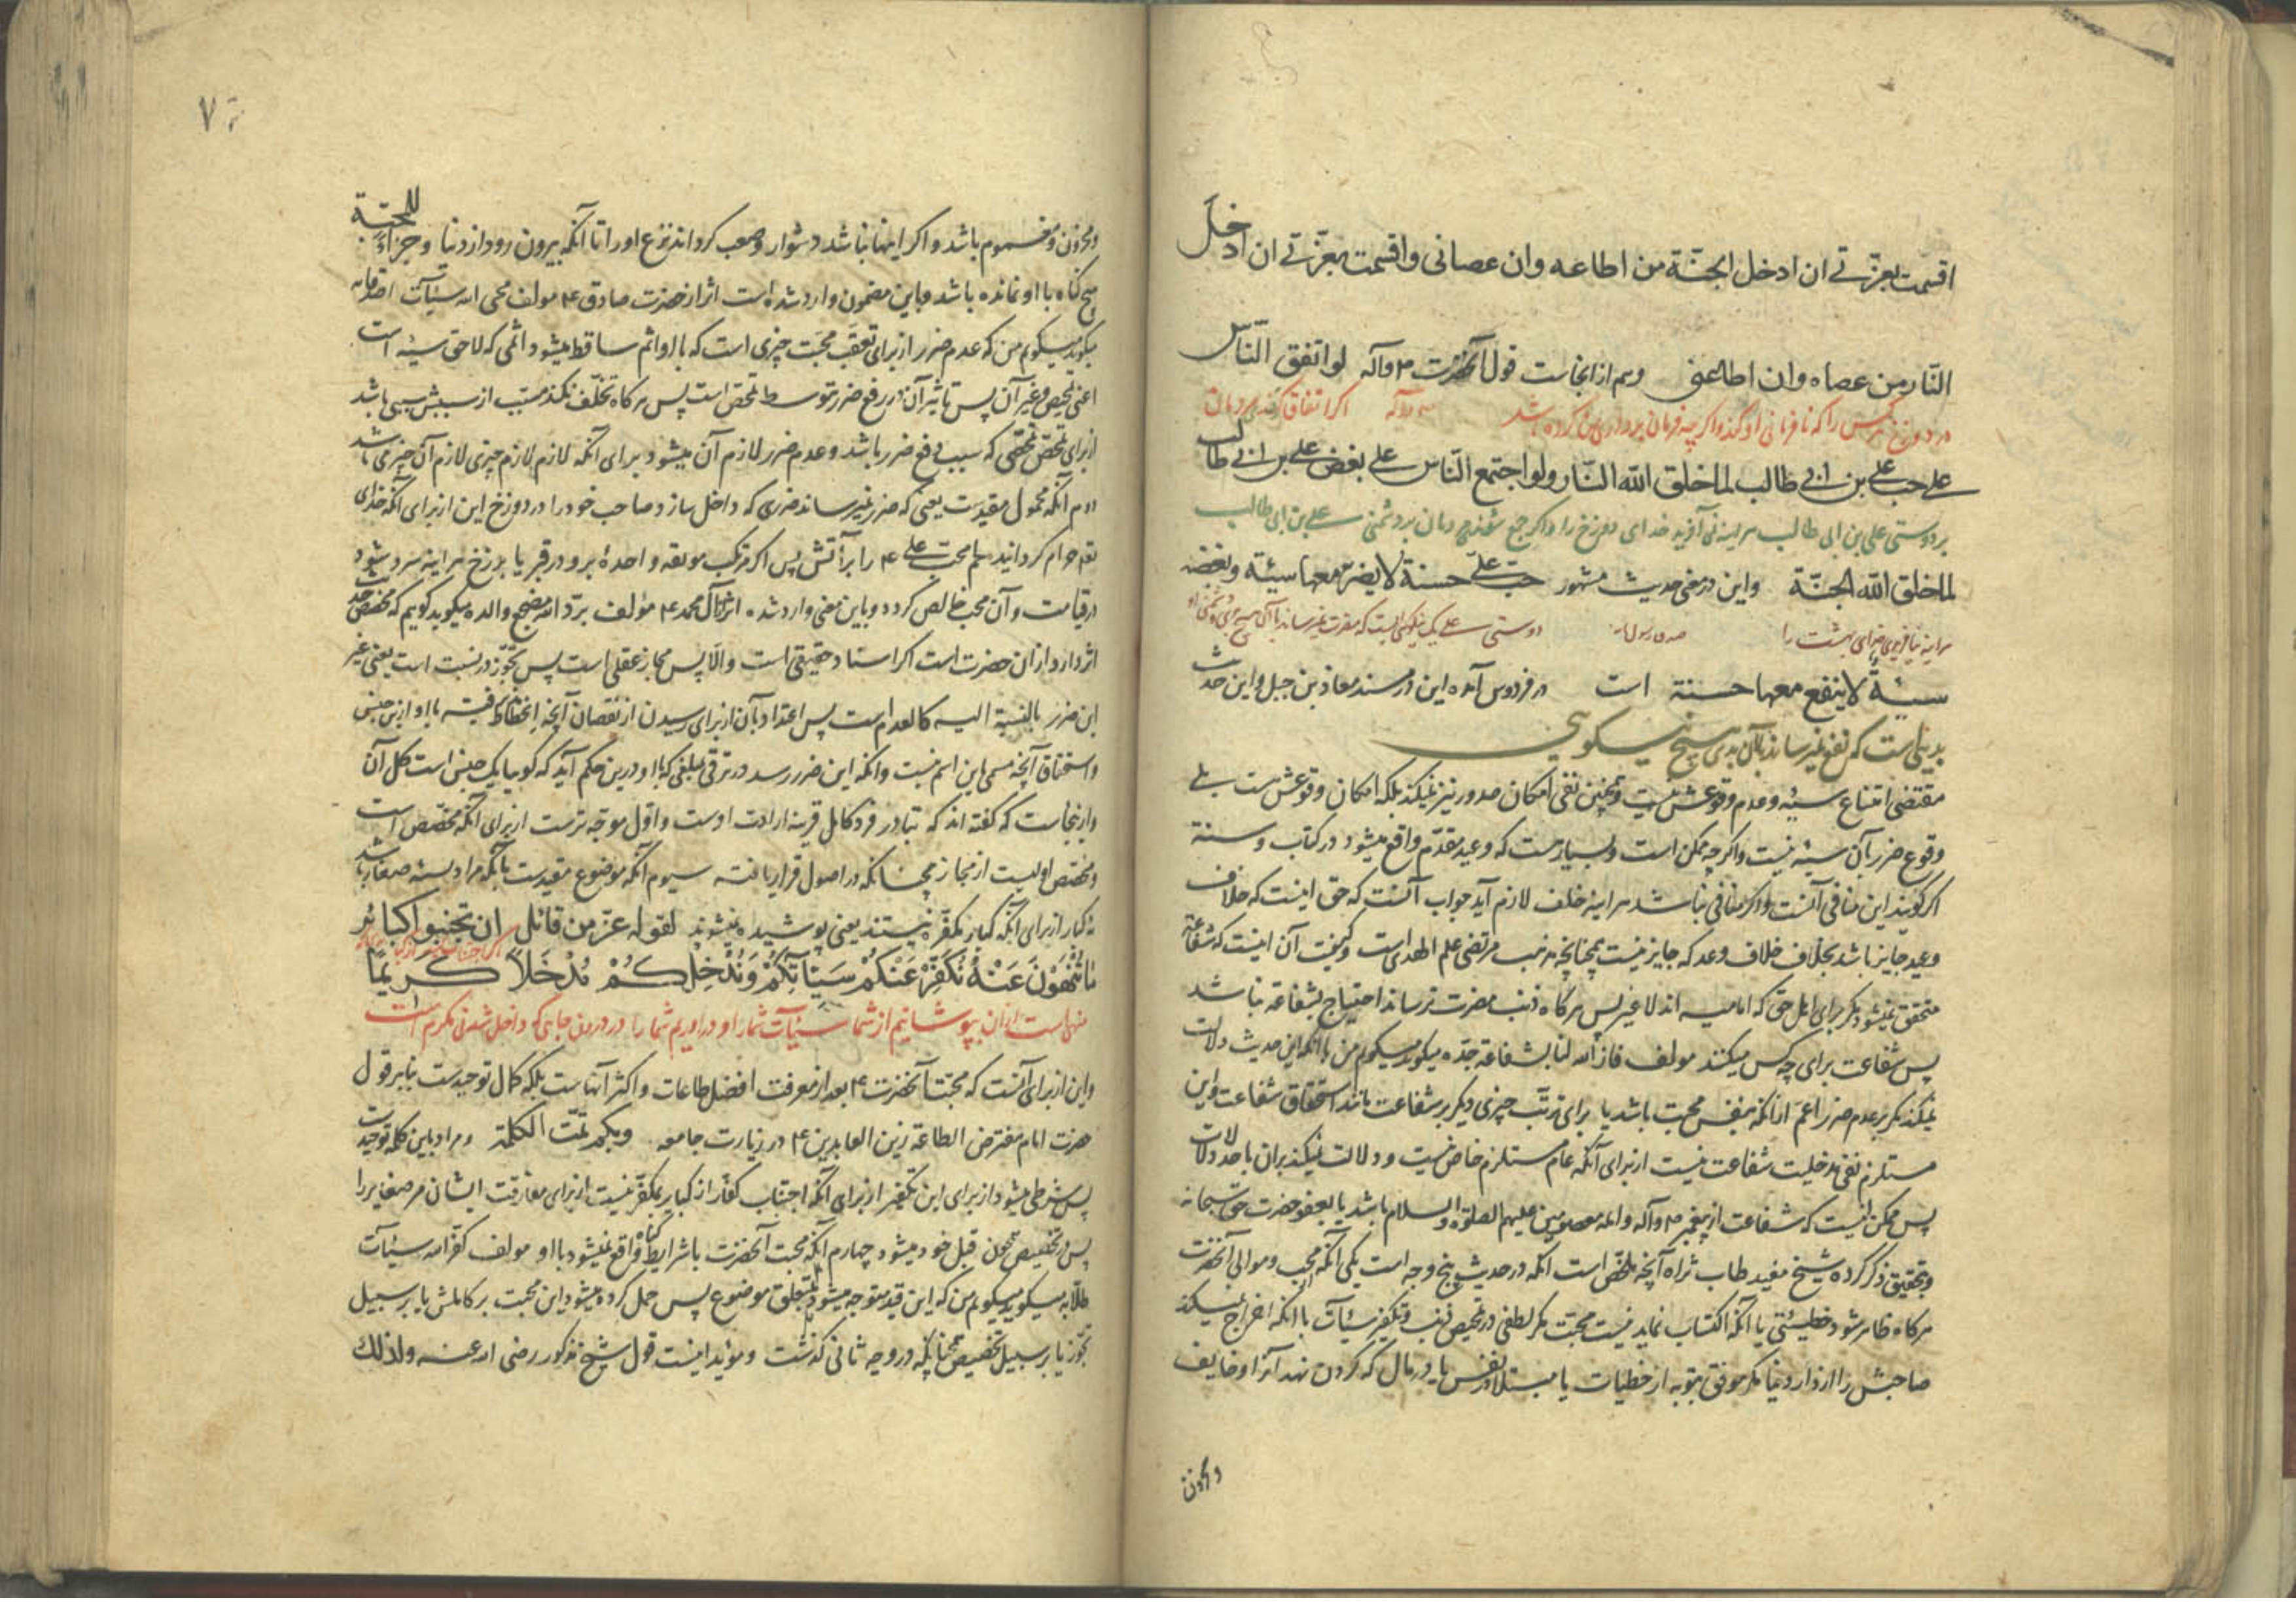 اقسمت بعزّتی ان ادخل الجنّة من اطاعه وان عصانی واقسمت بعزّتی ان ادخل
النّار من عصاه وان اطاعنی وهم از انجاست قول آنحضرت ص وآله لو اتفق النّاس
در دوزخ هر کس را که نافرمانی او کند واکر چه فرمان برداری من کرده باشد ص وآله اکر اتفاق کردندی مردمان
علی حب علی بن ابی طالب لما خلق الله النّار ولو اجتمع النّاس علی بغض علی بن ابی طالب
بر دوستی علی بن ابی طالب هراینه نمی آفرید خدای دوزخ را واکر جمع شدندی مردمان بر دشمنی علی بن ابی طالب
لما خلق الله الجنّة واین در معنی حدیث مشهور حبّ علیّ حسنة لا یضرّ معها سیئة وبغضه
هراینه نیافریدی خدای بهشت را دوستی علی یک نیکوئی است که مضرت نمیرساند با آن هیچ بدی و دشمنی او
سیئة لا ینفع معها حسنة است در فردوس آمده این در مسند معاذ بن جبل واین حدیث
بدیی است که نفع نمیرساند با آن بدی هیچ نیکوئی
مقتضی امتناع سیئه وعدم وقوعش نیست وهمچنین نفی امکان صدور نیز نمیکند بلکه امکان وقوعش هست بلی
وقوع ضرر بآن سیئه نیست واکر چه ممکن است وبسیار هست که وعید مقدّم واقع میشود در کتاب وسنة
اکر کویند این منافی آنست واکر منافی نباشد هراینه خلف لازم آید جواب آنست که حق اینست که خلاف
وعید جایز باشد بخلاف خلاف وعد که جایز نیست چنانچه مذهب مرتضی علم الهدی است وکیفیت آن اینست که شفاعة
متحقق نمیشود مکر برای اهل حق که امامیه اند لا غیر پس هرکاه ذنب مضرت نرساند احتیاج بشفاعة نباشد
پس شفاعت برای چه کس میکنند مولف فاز الله لنا بشفاعة جدّه میکوید میکویم من با آنکه این حدیث دلالت
نمیکند مکر بر عدم ضرر اعمّ از آنکه بنفس محبت باشد یا برای ترتب چیزی دیکر بر شفاعت مانند استحقاق شفاعت واین
مستلزم نفی مدخلیت شفاعت نیست از برای آنکه عام مستلزم خاص نیست ودلالت نمیکند بران باحد دلالات
پس ممکن نیست که شفاعت از پیغمبر ص وآله وائمه معصومین علیهم الصلوة والسلام باشد یا بعفو حضرت حق سبحانه
وبتحقیق ذکر کرده شیخ مفید طاب ثراه آنچه ملخّص است آنکه در حدیث پنج وجه است یکی آنکه محب وموالی آنحضرت
هرکاه ظاهر شود خطیئتی یا آنکه اکتساب نماید نیست محبت مکر لطفی در تمحیص ذنب وتکفیر سیئات با آنکه اخراج نمیکند
صاحبش را از دار دنیا مکر موفق بتوبه از خطیات یا مبتلا در نفس یا در مال که کردن نهد آنرا وخایف
ومحزون
ومحزون ومغموم باشد واکر اینها نباشد دشوار وصعب کرداند نزع او را تا آنکه بیرون رود از دنیا وجزاء للجنّة
هیچ کناه با او نمانده باشد وباین مضمون وارد شده است اثر از حضرت صادق ع مولف محی الله سیئات
میکوید میکویم من که عدم ضرر از برای تعقب محبت چیزی است که با او اثم ساقط میشود اثمی که لاحق سیئه است
اعنی تمحیص وغیر آن پس تاثیر آن در رفع ضرر بتوسط تمحص است پس هرکاه تخلّف نکند مسبب از سببش سببی باشد
از برای تمحص تمحصی که سبب رفع ضرر باشد وعدم ضرر لازم آن میشود برای آنکه لازم لازم چیزی لازم آن چیز می باشد
دوم آنکه محمول مقیدست یعنی که ضرر نمیرساند ضرری که داخل سازد صاحب خود را در دوزخ این از برای آنکه خدای
تعم حرام کردانید جسم محب علی ع را بر آتش پس اکر مرتکب موبقه واحده برو در قبر یا برزخ هراینه سرد شود
در قیامت وآن محب خالص کردد وباین معنی وارد شده اثر از آل محمد ع مؤلف برّد الله مضجع والده میکوید کویم که مختص حدیث
اثر دارد از ان حضرت است اکر اسناد حقیقی است والا پس مجاز عقلی است پس تجوّز در نسبت است یعنی غیر
این ضرر بالنسبة الیه کالعدم است پس اعتداد بآن از برای رسیدن از نقصان آنچه
واستحقاق آنچه مسمی باین اسم نیست وآنکه این ضرر رسد در ترقی بمبلغی که با او درین حکم آید که کویا یک جنس است کل آن
واز انجاست که کفته اند که تبادر فرد کامل قرینه ارادت اوست واوّل موجه ترست از برای آنکه مخصّص است
ومختص اولیست از مجاز چنانکه در اصول قرار یافته سیوم آنکه موضوع مقیدست بآنکه مراد بسیئه صغایر باشد
نه کبایر از برای آنکه کبایر مکفّره نیستند یعنی پوشیده نمیشوند لقوله عزّ من قائل ان تجتنبوا کبائر
ما تُنْهَوْنَ عَنْهُ نُکَفِّرْ عَنْکُمْ سَیِّاٰتِکُمْ وَنُدْخِلْکُمْ مُدْخَلاً کَرِیماً
منهی است از ان بپوشانیم از شما سیئات شما را ودر اوریم شما را در درون جایی که داخل شدنی مکرم است
واین از برای آنست که محبت آنحضرت ع بعد از معرفت افضل طاعات واکثر آنهاست بلکه کمال توحیدست بنا بر قول
حضرت امام مفترض الطاعة زین العابدین ع در زیارت جامعه وبکم تمّت الکلمة ومراد باین کلمه توحیدست
پس شرطی میشود از برای این تکفیر از برای آنکه اجتناب کفّار از کبایر مکفّر نیست از برای مفارقت ایشان مر صغایر را
پس در تخصیص قبل خود میشود چهارم آنکه محبت آنحضرت با شرایط کناه واقع نمیشود با او مولف کفّر الله سیئات
طلّابه میکوید میکویم من که این قید متوجه میشود بمتعلق موضوع پس حمل کرده میشود این محبت بر کاملش یا بر سبیل
تجوّز یا بر سبیل تخصیص چنانکه در وجه ثانی کذشت ومؤید اینست قول شیخ مذکور رضی الله عنه ولذلک